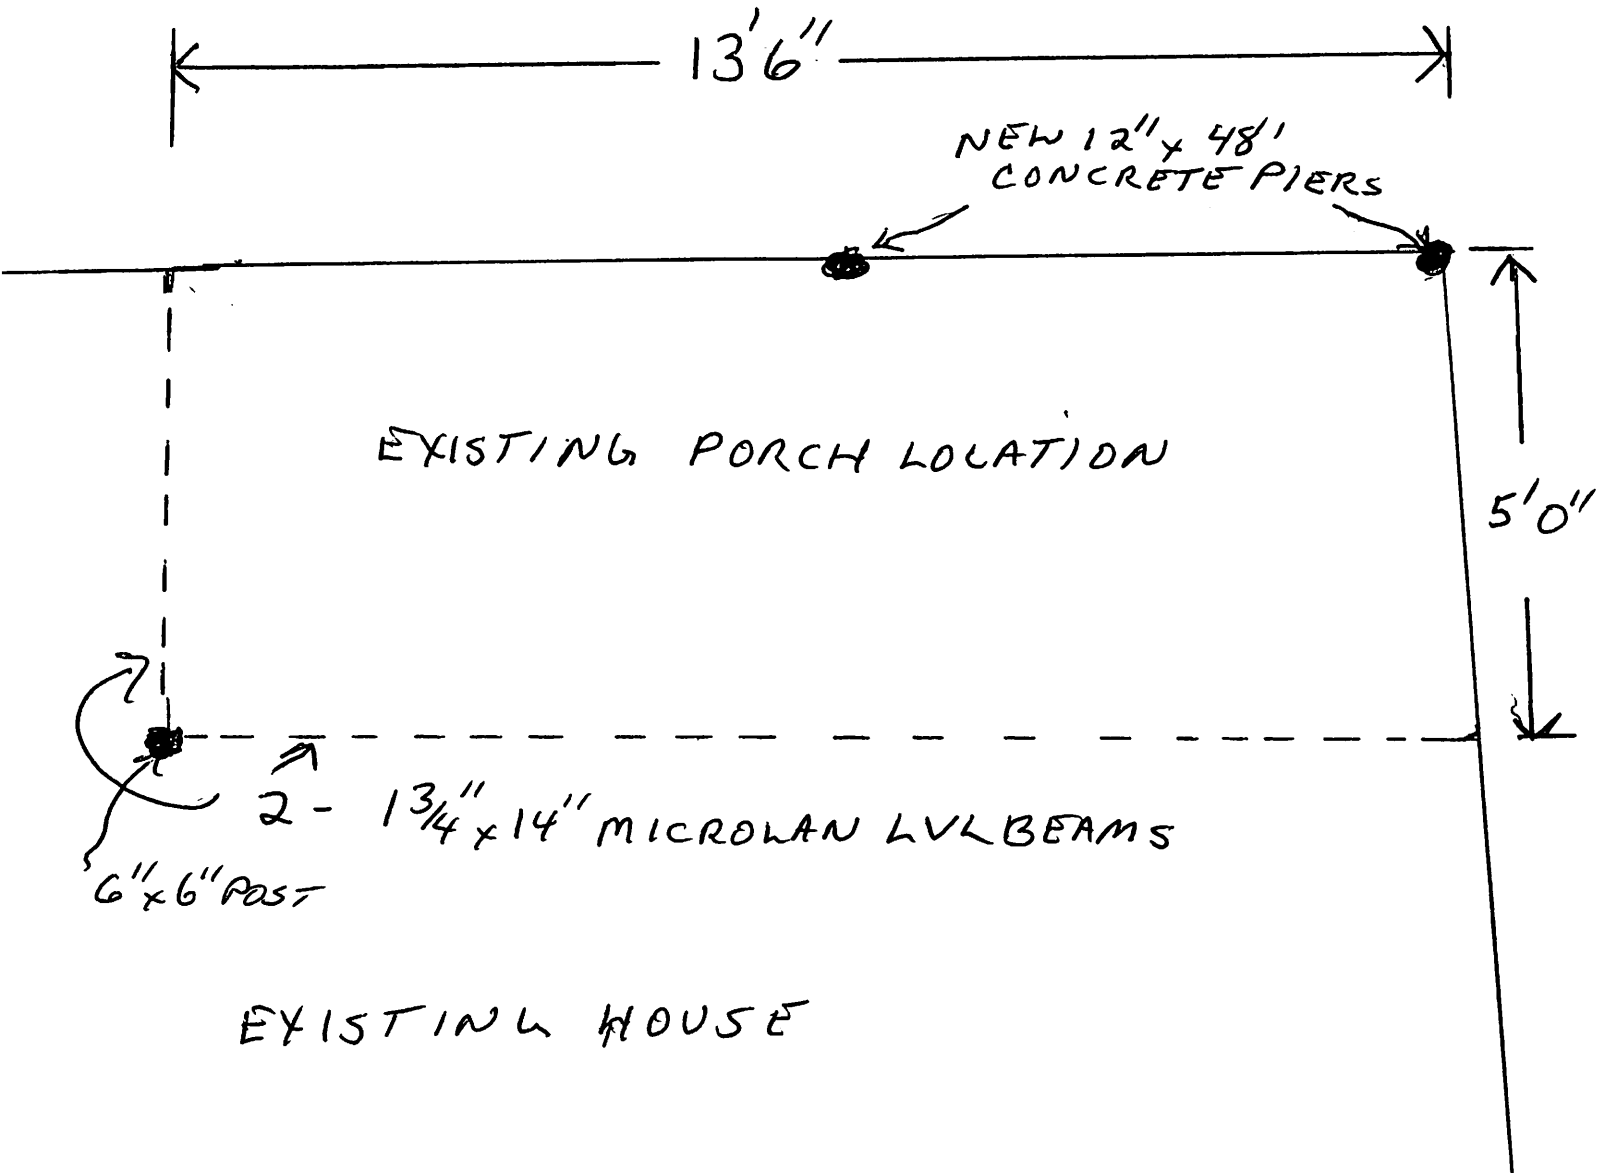 13'6"
NEW 12"x 48"
CONCRETE PIERS
EXISTING PORCH LOCATION
5'0"
2- 1 3/4"x14" MICROLAN LVL BEAMS
6"x6" POST
EXISTING HOUSE